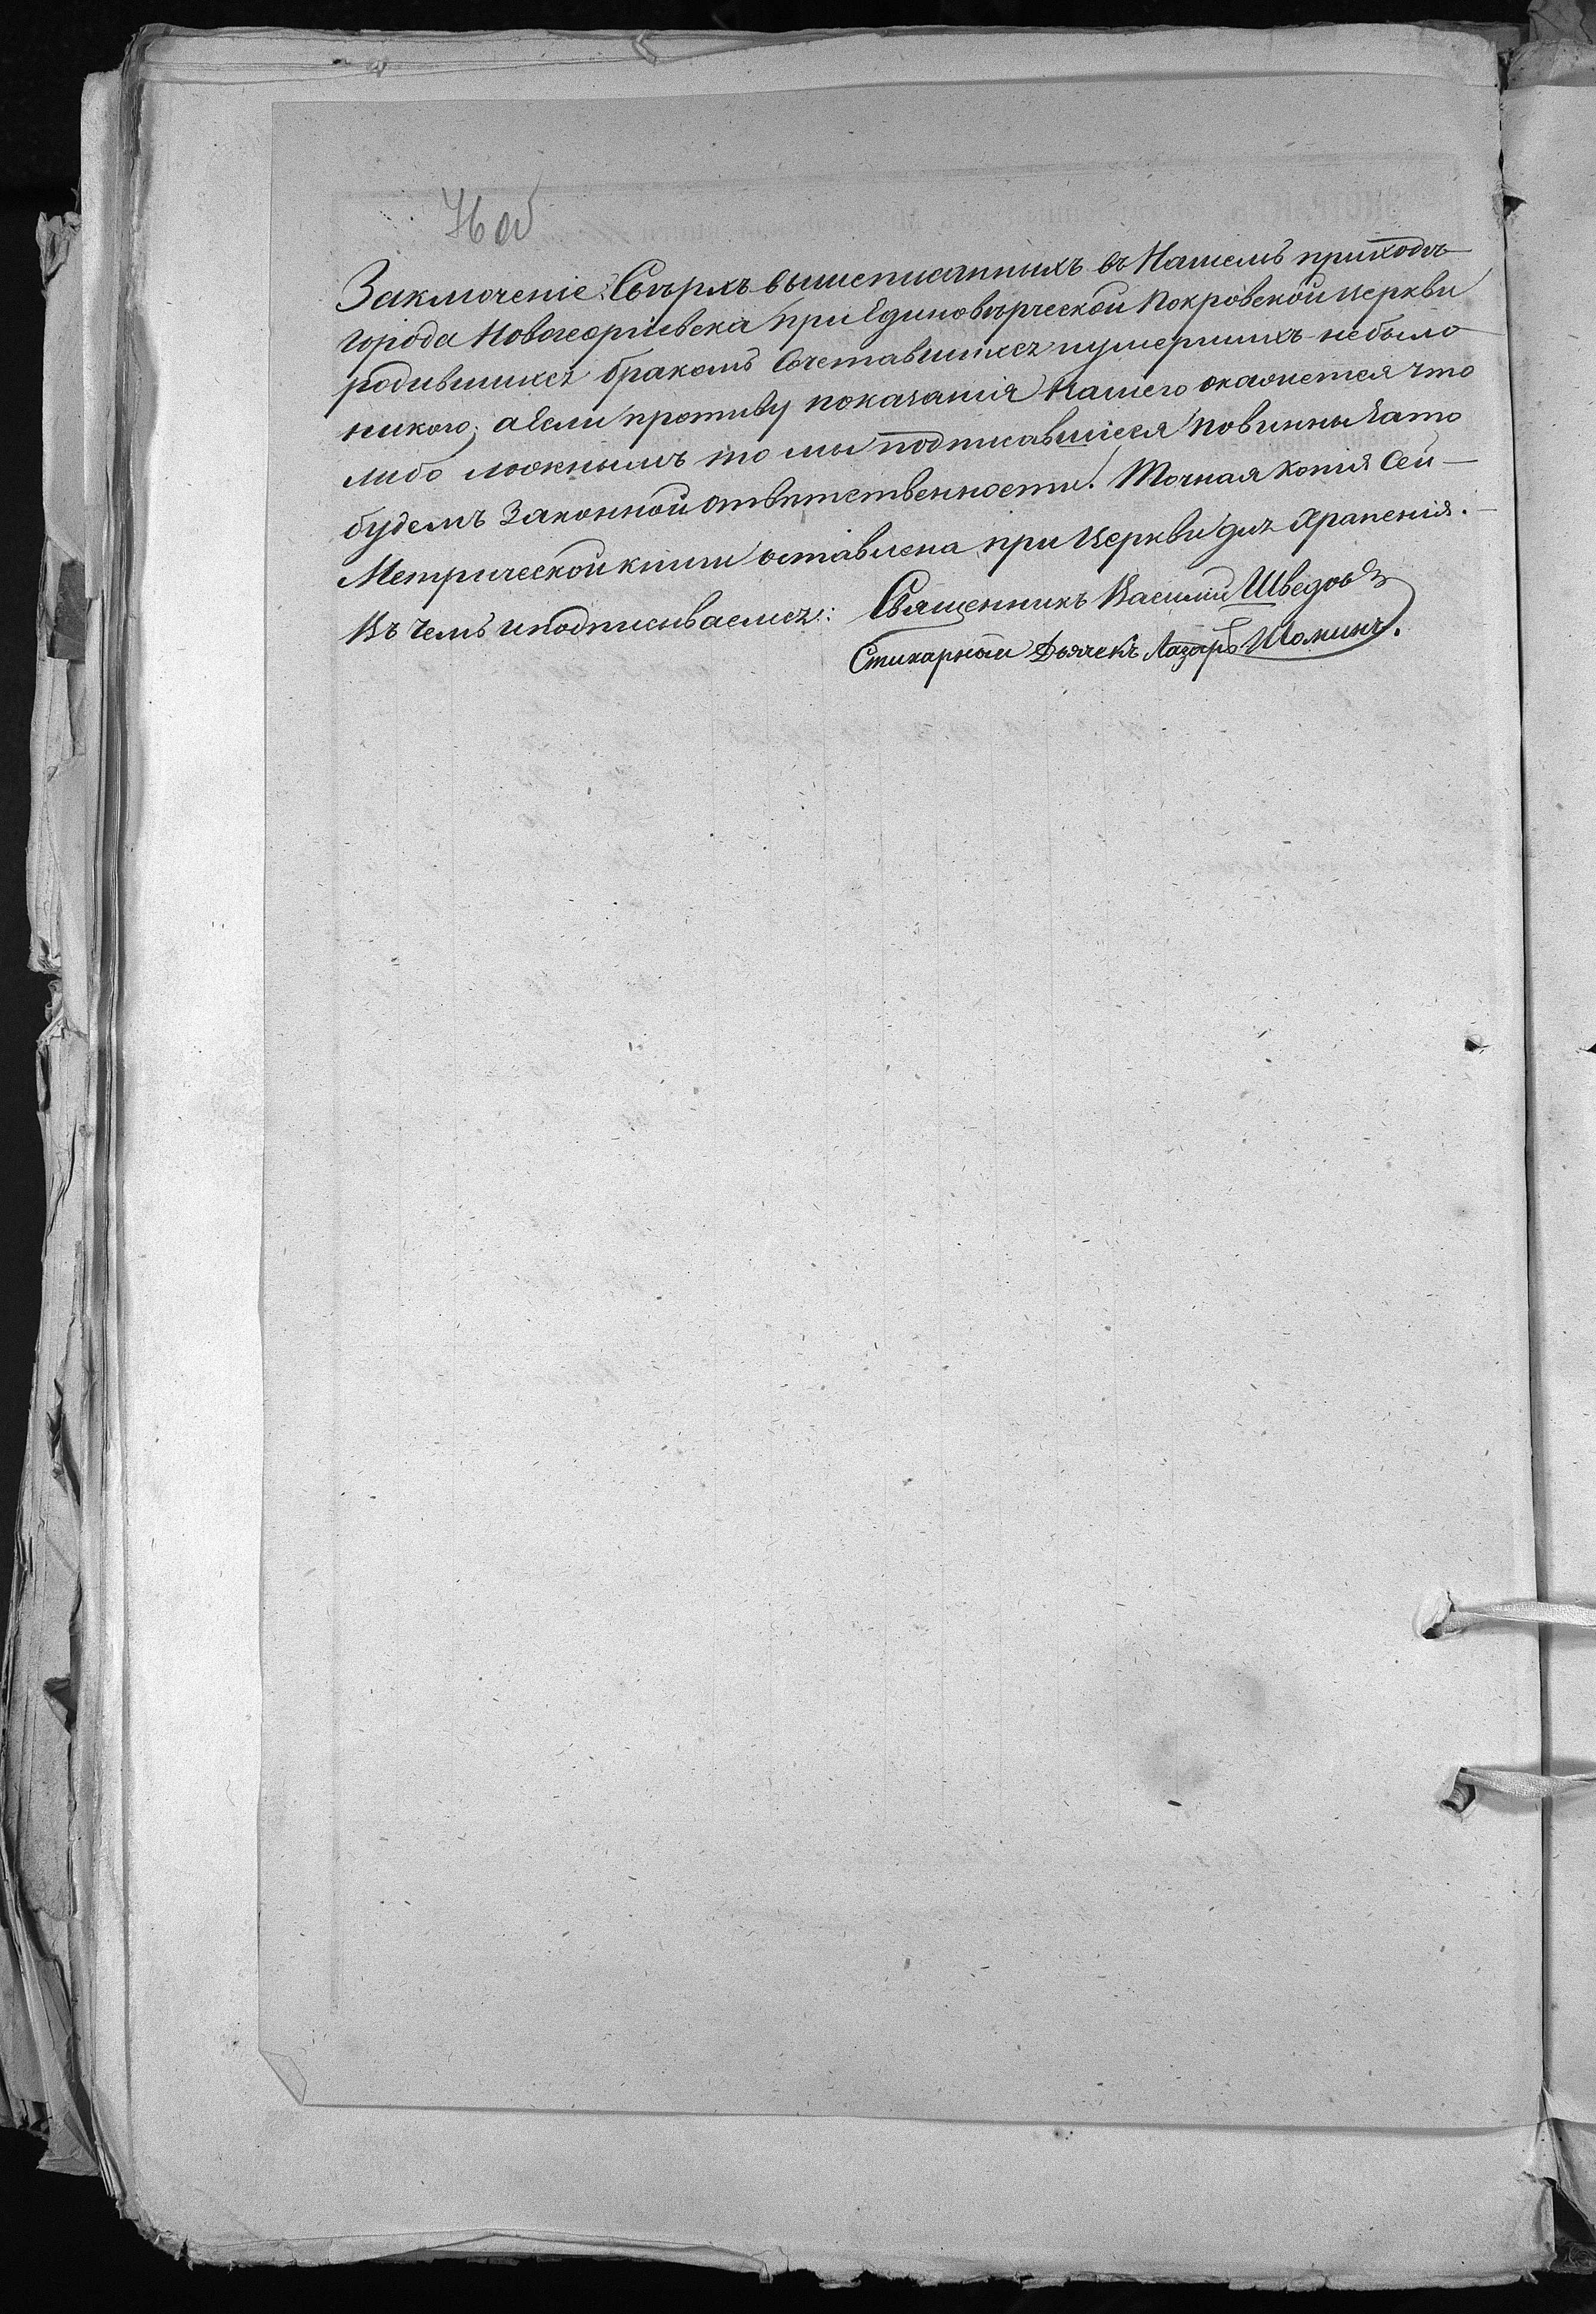 Заключеніе: Свѣрхъ вышеписанныхъ въ Нашемъ приходѣ
города Новогеоргіевска при Единовѣрческой Покровской церкви
родившихся бракомъ Сочетавшихся иумершихъ небыло
никого; аЕсли противу показанія Нашего окажется что
либо ложнымъ то мы подписавшіеся повинны Зато
будемъ Законной отвѣтственности. Точная Копія Сей
Метрической книги оставлена при Церкви для Храненія.
Въ чемъ иподписываемся: Священникъ Василій Шведовъ
Стихарный Дьячекъ Лазарь Шоминъ.